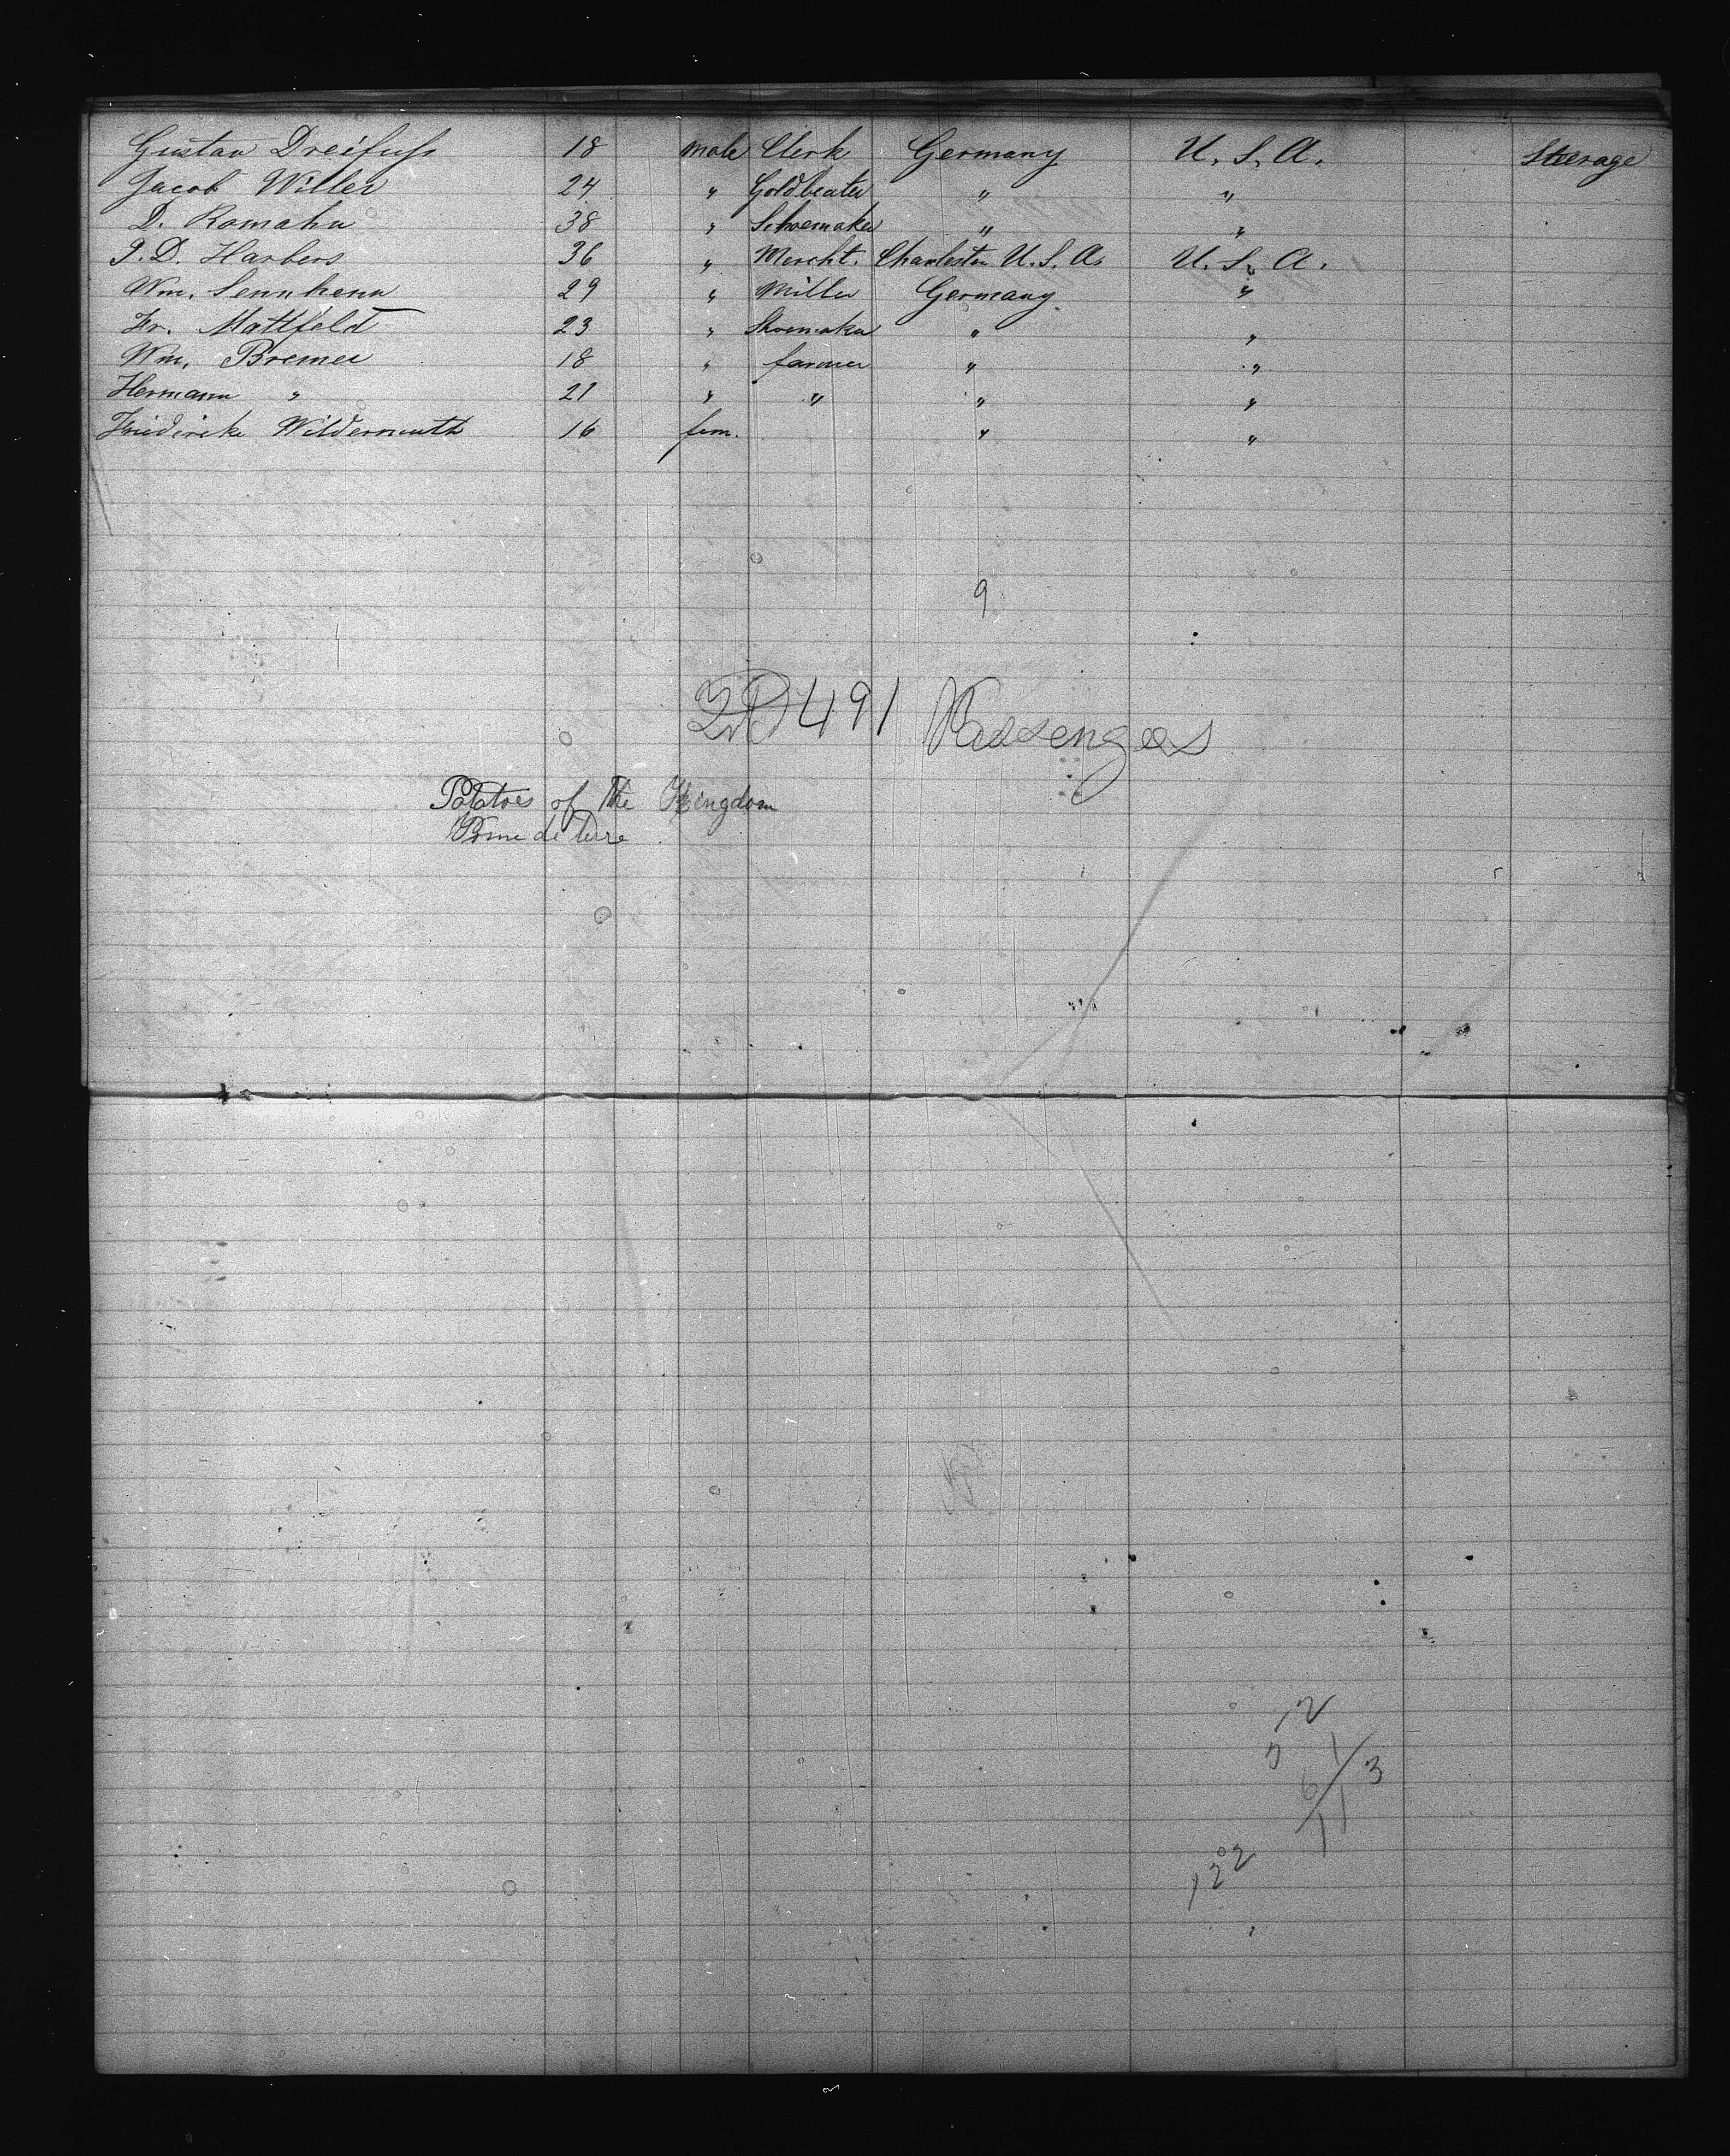 Gustav Dreifuss 18 male Clerk Germany U. S. A. Steerage
Jacob Willer 24 " Goldbeater " "
D. Romahn 38 " Schoemaker " "
J. D. Harbers 36 " Mercht. Charleston U. S. A. U. S. A.
Wm. Sennhenn 29 " Miller Germany "
Fr. Mattfeld 23 " Shoemaker " "
Wm. Bremer 18 " farmer " "
Hermann " 21 " " " "
Friedericke Wildermuth 16 fem. " "
9
491 Passengers
Potatoes of the Kingdom
Pome de terre
12
3
122